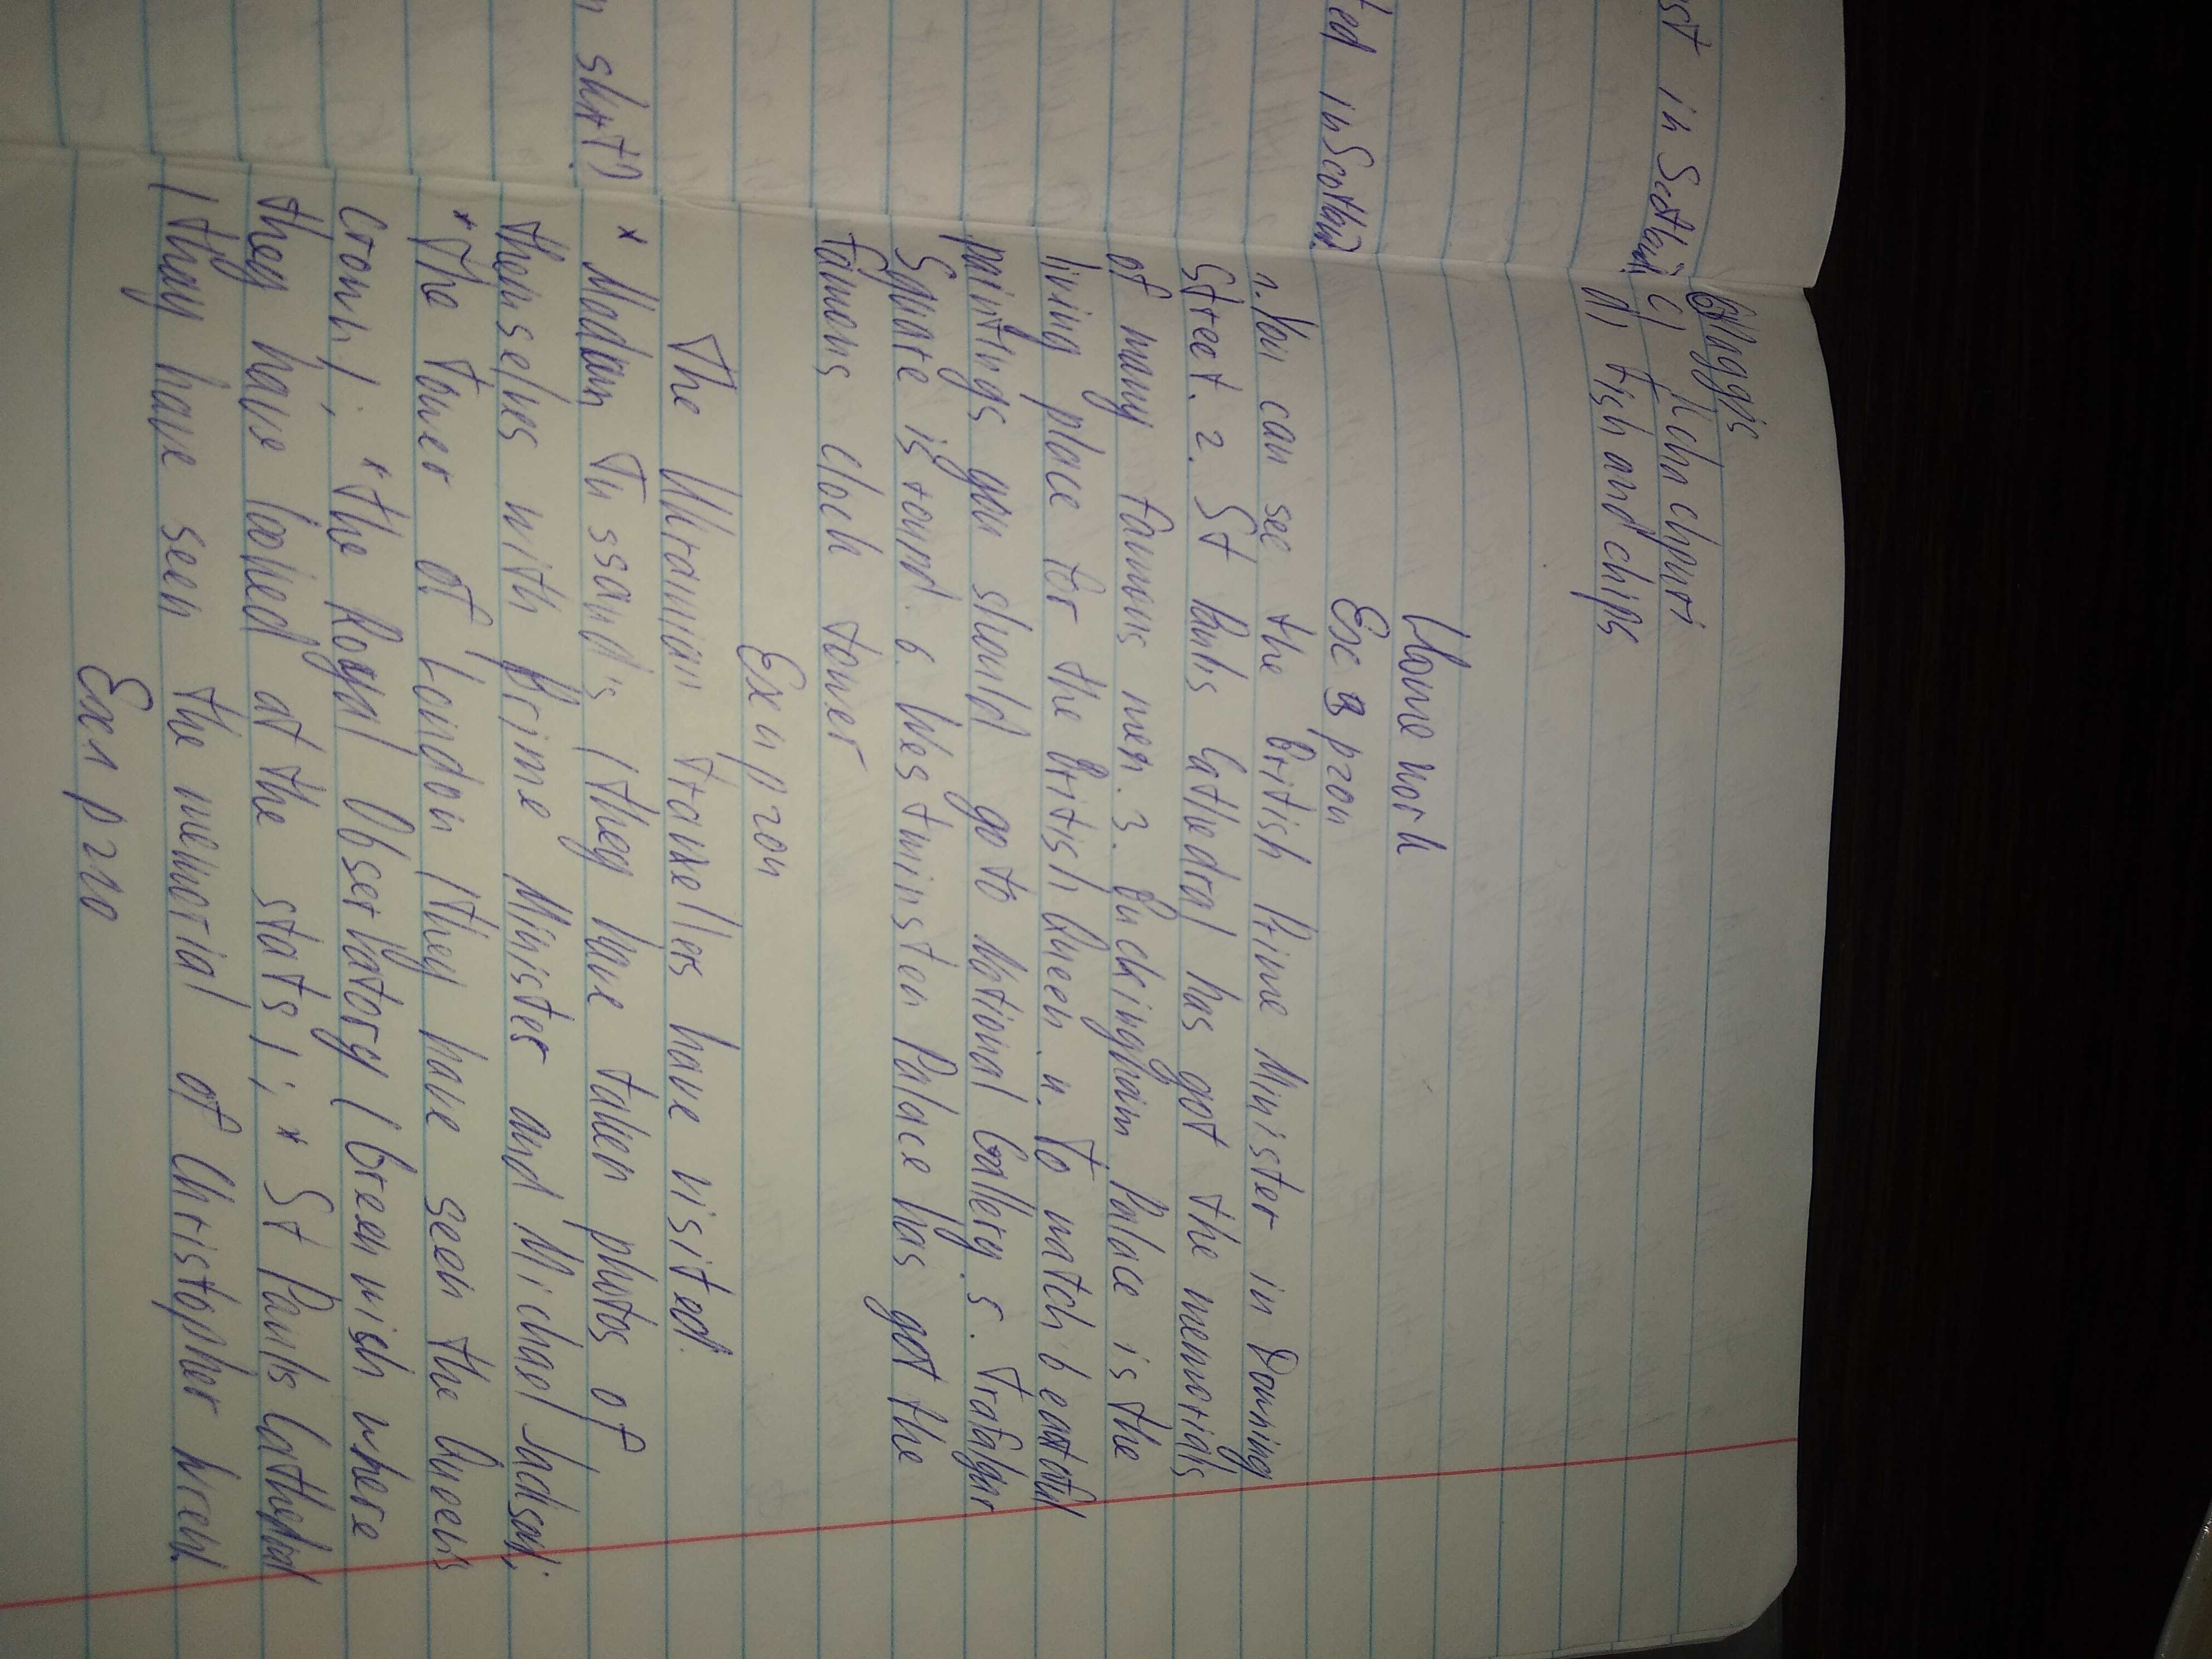 st in Scotland?
ted in Scotland?
n skirt?)
b) Haggis
c) Khachpuri
d) Fish and chips
Home work
Exc 3 p204
1. You can see the British Prime Minister in Downing
Street. 2. St Pauls Cathedral has got the memorials
of many famous men. 3. Buckingham Palace is the
living place for the British Queen. 4. To watch beatful
paintings you should go to National Gallery. 5. Trafalgar
Square is round. 6. Westminsten Palace has got the
famous clock tower
Ex 4 p204
The Ukrainian travellers have visited:
* Madam Tussaud's (they have taken photos of
themselves with Prime Minister and Michael Jackson);
* The Tower of London (they have seen the Queens
crown); * the Royal Observatory (Greenwich where
they have looked at the stats); * St Pauls Cathedral
(they have seen the memorial of Christopher Wren).
Ex 1 p 210